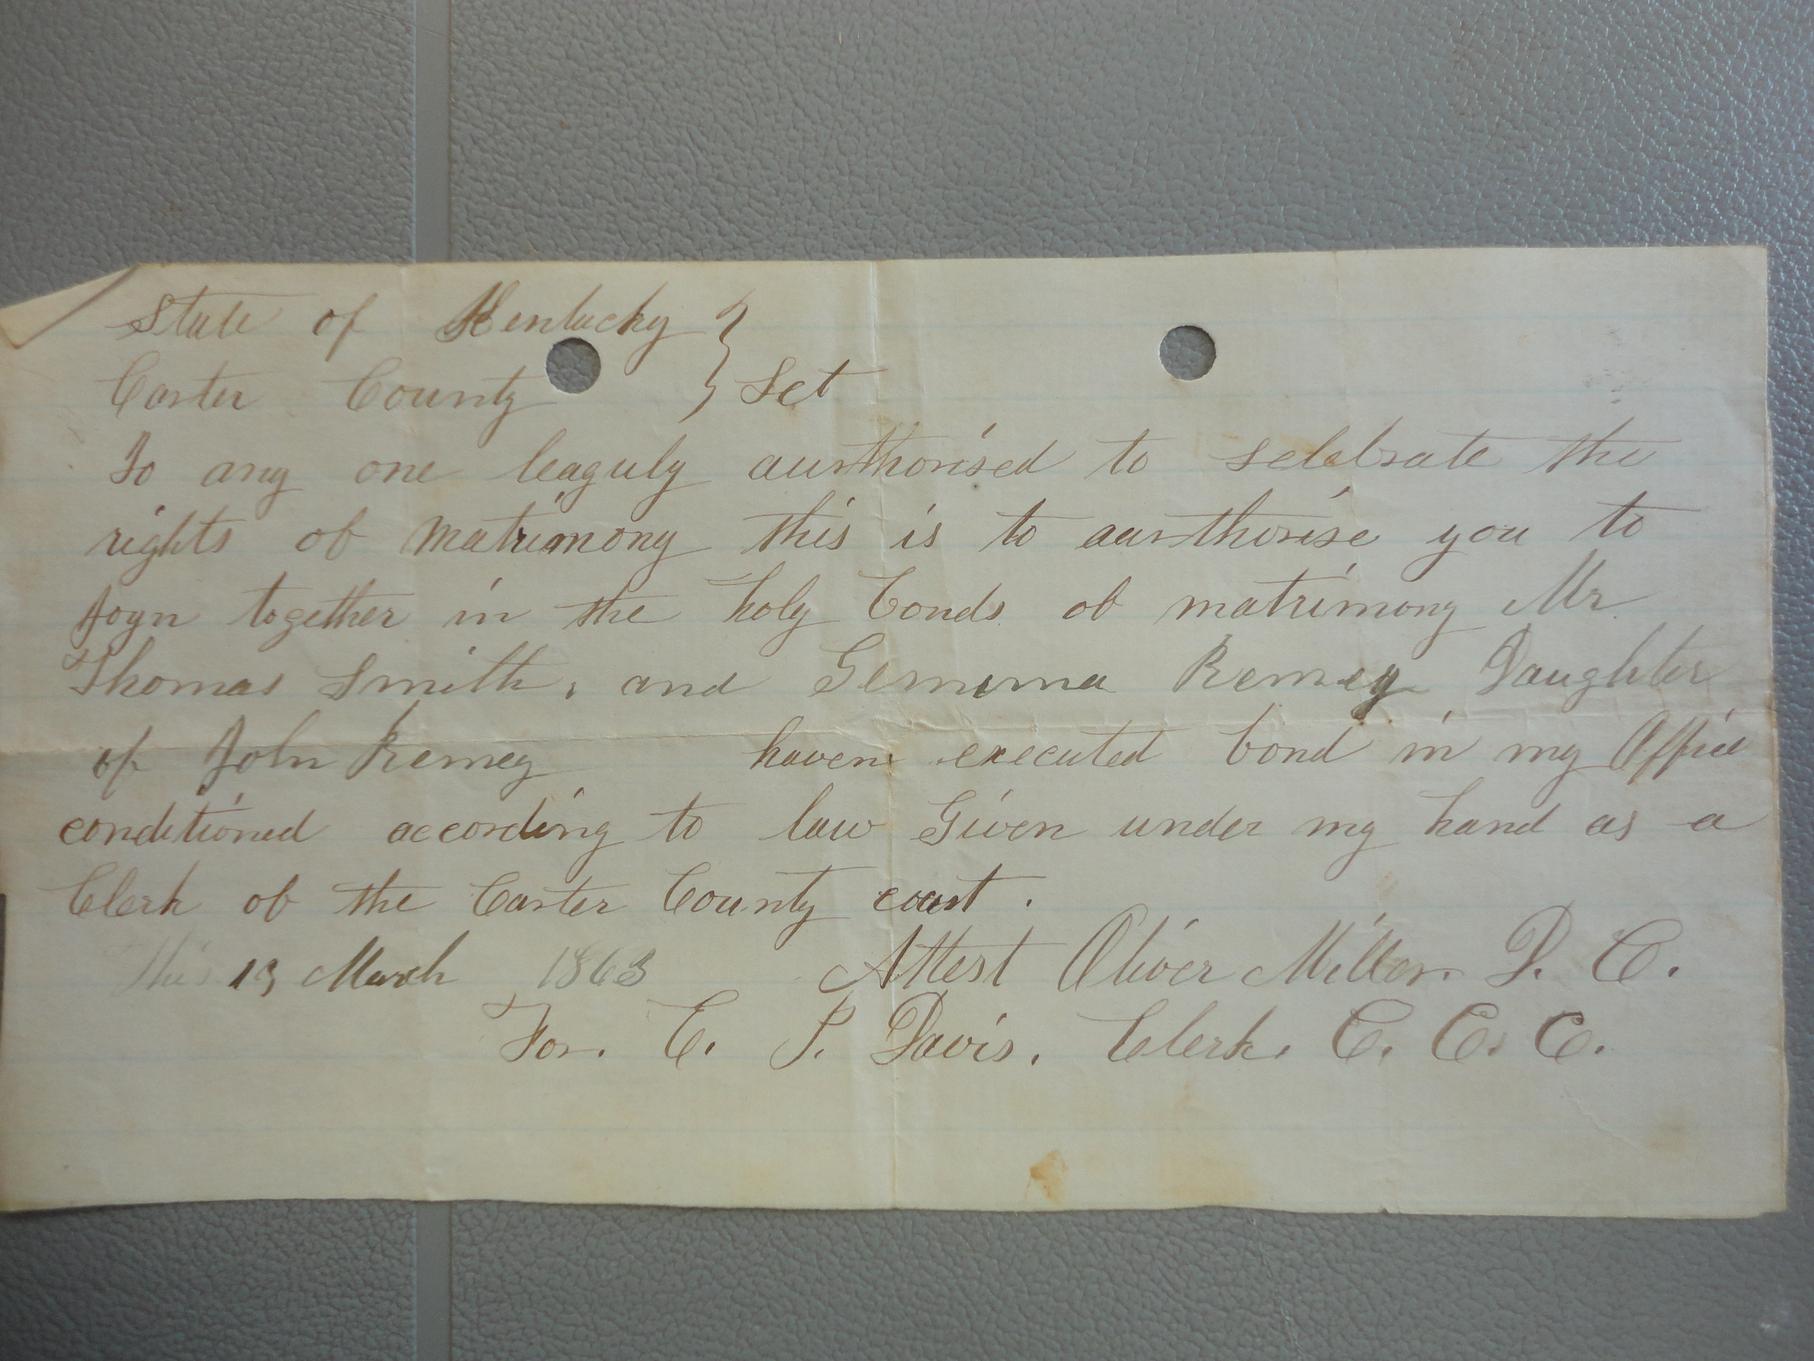 State of Kentucky }
Carter County } Sct
To any one leaguly aurthorised to selebrate the
rights of matrimony this is to aurthorise you to
Joyn together in the holy bonds of matrimony Mr
Thomas Smith, and Gemima Remey Daughter
of John Remey haven executed bond in my Office
conditioned according to law Given under my hand as a
Clerk of the Carter County court.
This 13 March 1863 Attest Oliver Miller. D. C.
For. C. P. Davis. Clerk. C. C. C.